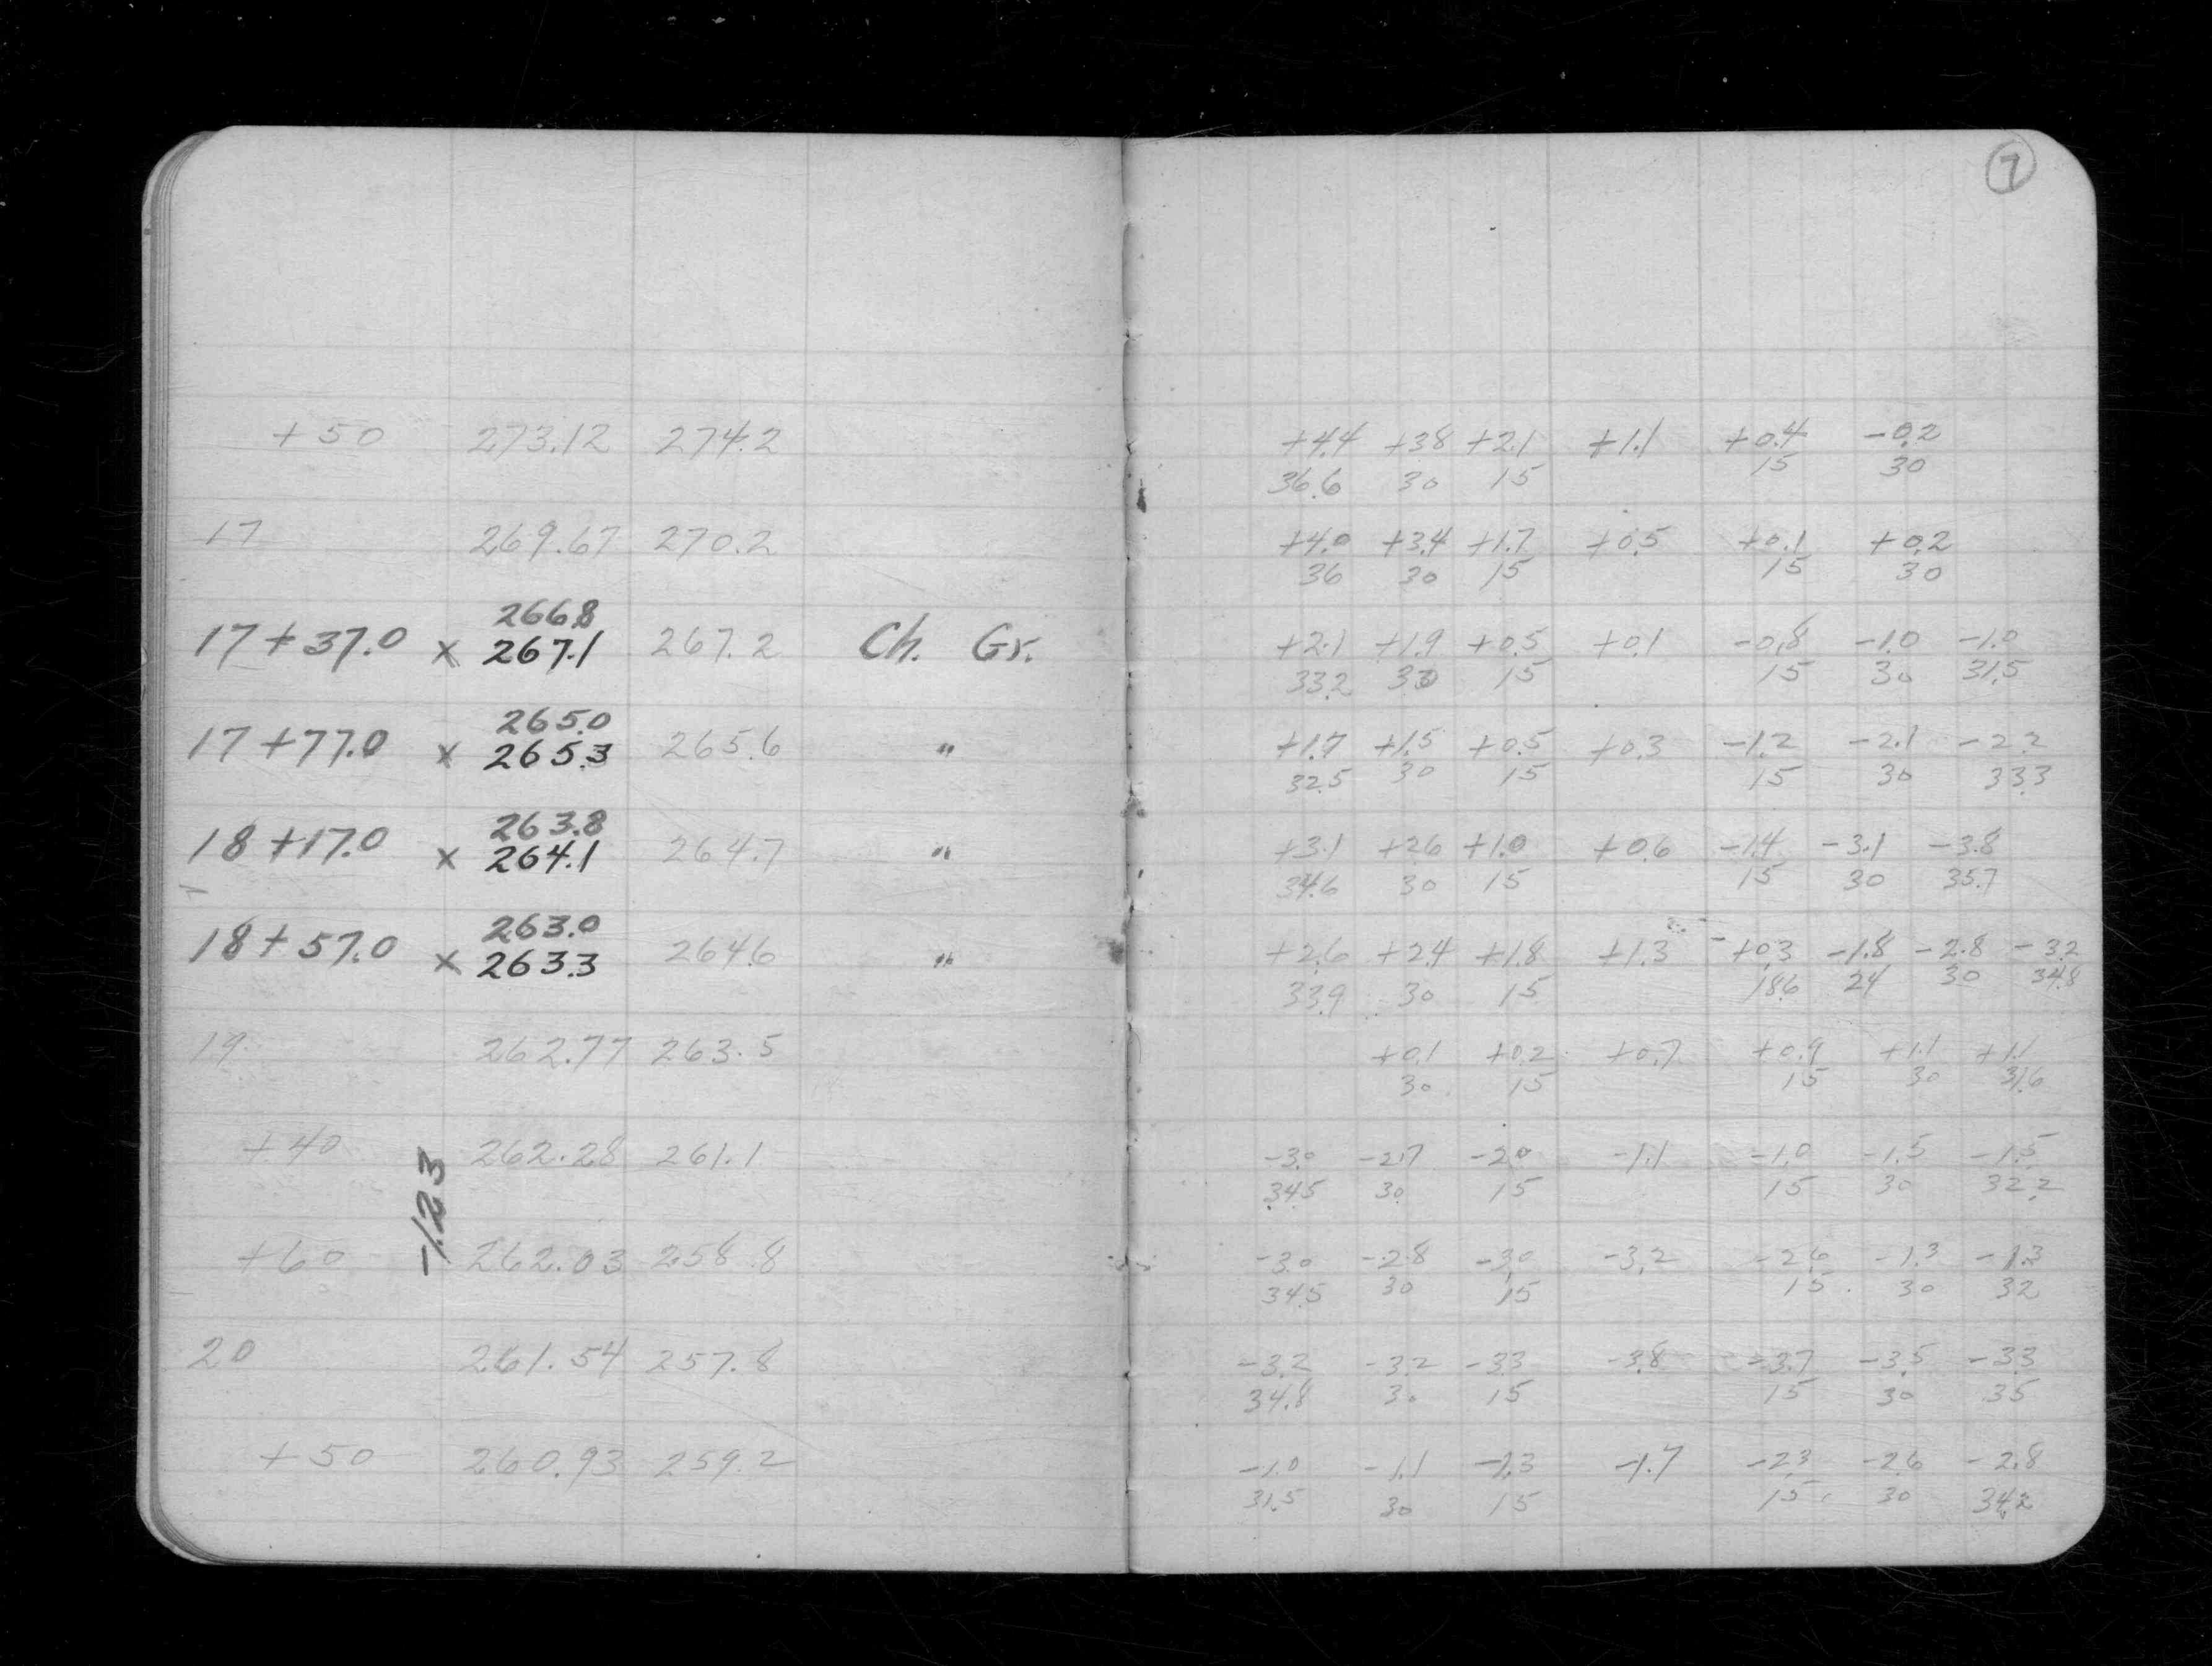 7
+50 273.12 274.2 +4.4 +3.8 +2.1 +1.1 +0.4 -0.2
36.6 30 15 15 30
17 269.67 270.2 +4.0 +3.4 +1.7 +0.5 +0.1 +0.2
36 30 15 15 30
266.8
17+37.0 x 267.1 267.2 Ch. Gr. +2.1 +1.9 +0.5 +0.1 -0.8 -1.0 -1.0
33.2 30 15 15 30 31.5
265.0
17+77.0 x 265.3 265.6 " +1.7 +1.5 +0.5 +0.3 -1.2 -2.1 -2.2
32.5 30 15 15 30 33.3
263.8
18+17.0 x 264.1 264.7 " +3.1 +2.6 +1.0 +0.6 -1.4 -3.1 -3.8
34.6 30 15 15 30 35.7
263.0
18+57.0 x 263.3 264.6 " +2.6 +2.4 +1.8 +1.3 +0.3 -1.8 -2.8 -3.2
33.9 30 15 18.6 24 30 34.8
19 262.77 263.5 +0.1 +0.2 +0.7 +0.9 +1.1 +1.1
30 15 15 30 31.6
+40 262.28 261.1 -3.0 -2.7 -2.0 -1.1 -1.0 -1.5 -1.5
34.5 30 15 15 30 32.2
-1.23
+60 262.03 258.8 -3.0 -2.8 -3.0 -3.2 -2.6 -1.3 -1.3
34.5 30 15 15 30 32
20 261.54 257.8 -3.2 -3.2 -3.3 -3.8 -3.7 -3.5 -3.3
34.8 30 15 15 30 35
+50 260.93 259.2 -1.0 -1.1 -1.3 -1.7 -2.3 -2.6 -2.8
31.5 30 15 15 30 34.2